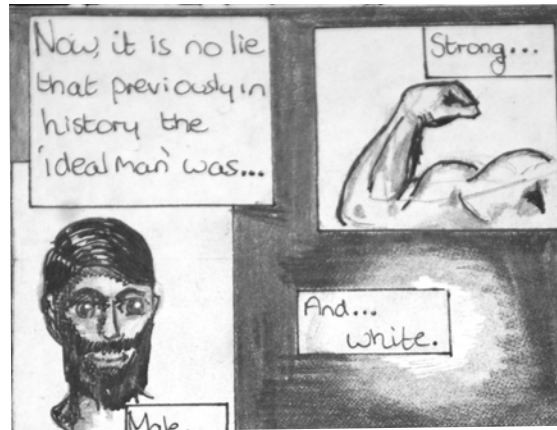 Now, it is no lie
that previously in
history the
'ideal man' was...
Strong...
Male...
And...
white.